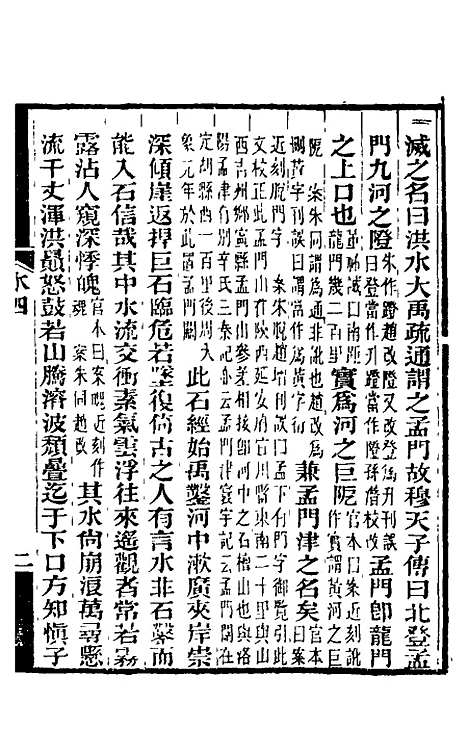 滅之名曰洪水大禹疏通謂之孟門故穆天子傳曰北登孟
門九河之隥
朱作磴趙改隥又改登爲升刊誤
曰登當作升磴當作隥孫潛校改
孟門卽龍門
之上口也
南距
龍門幾二百里
實爲河之巨阸
官本曰案近刻訛
作實黃河之巨
阸 案朱同謂爲通非訛也趙改爲
黃字刊誤曰黃當作爲黃字衍
兼孟門津之名矣
官本
曰案
近刻脫門字 案朱脫趙增刊誤曰孟下落門字御覽引此
文校正此孟門山在今延安府宜川縣東南二十里與山
西吉州鄉甯縣孟門山參差相接河中之石槽山也與洛
陽孟津有別辛氏三秦記亦云孟門
定胡縣西一百里後周大
象元年於此置孟門關
此石經始禹鑿河中漱廣夾岸崇
深傾崖返捍巨石臨危若墜復倚古之人有言水非石鑿而
能入石信哉其中水流交衝素氣雲浮往來遙觀者常若霧
露沾人窺深悸魄
官本曰案魄近刻作
魂 案朱同趙改
其水尚崩浪萬尋懸
流千丈渾洪贔怒鼓若山騰濬波頹疊迄于下口方知愼子
水四
二